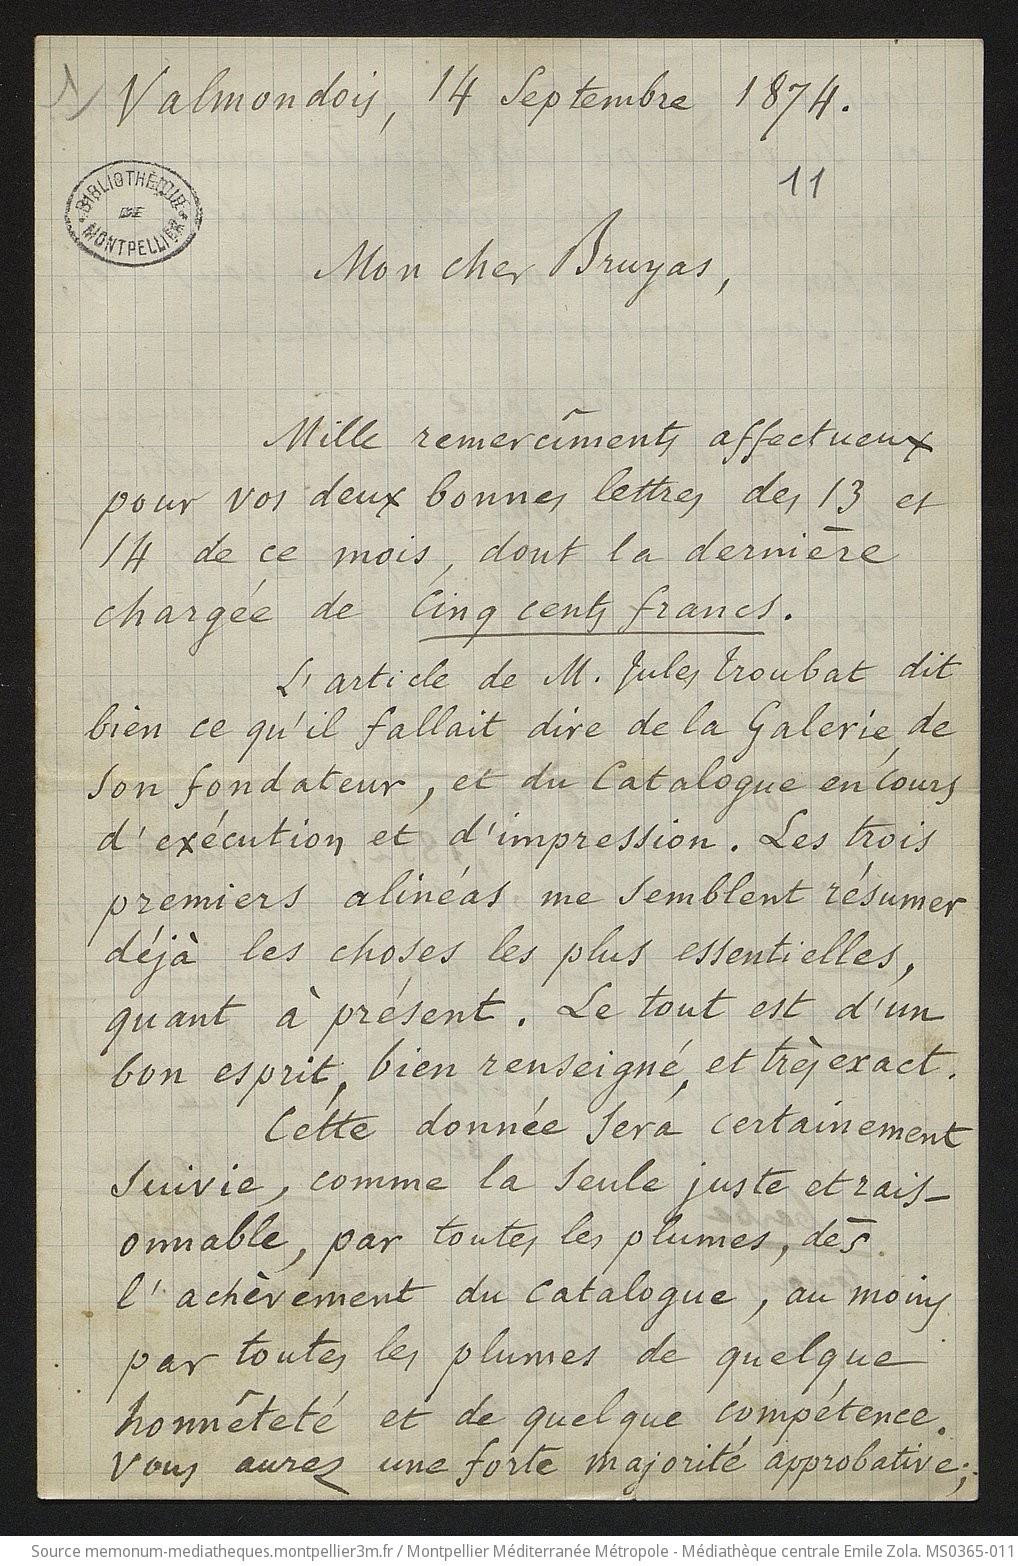 1)
Valmondois, 14 Septembre 1874.
11
BIBLIOTHEQUE
DE
MONTPELLIER
Mon cher Bruyas,
Mille remercîments affectueux
pour vos deux bonnes lettres des 13 et
14 de ce mois, dont la dernière
chargée de Cinq cents francs.
L'article de M. Jules Troubat dit
bien ce qu'il fallait dire de la Galerie, de
son fondateur, et du Catalogue en cours
d'exécution et d'impression. Les trois
premiers alinéas me semblent résumer
déjà les choses les plus essentielles,
quant à présent. Le tout est d'un
bon esprit, bien renseigné, et très exact.
Cette donnée sera certainement
suivie, comme la seule juste et rais-
onnable, par toutes les plumes, dès
l'achèvement du catalogue, au moins
par toutes les plumes de quelque
honnêteté et de quelque compétence.
Vous aurez une forte majorité approbative;
Source memonum-mediatheques.montpellier3m.fr / Montpellier Méditerranée Métropole - Médiathèque centrale Emile Zola. MS0365-011